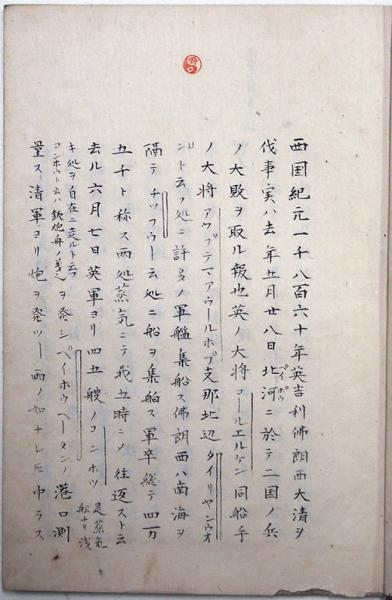 西国紀元一千八百六十年英吉利佛朗西大清ヲ
伐事実ハ去年五月廿八日北河ニ於テ二国ノ兵
ペイホウ
ノ大敗ヲ取ル報也英ノ大将コールエルケン同船手
ノ大将アウプテマアウールホプ支那北辺タイリヤンウオ
ント云フ処ニ許多ノ軍艦集船ス佛朗西ハ南海ヲ
隔テチッフウー云処ニ船ヲ集舶ス軍卒総テ四万
五千ト称ス両処蒸気ニテ我五時ニノ往返スト云
去ル六月七日英軍ヨリ四五艘ノコンホウ
是蒸気
船ナリ浅
キ処ヲ自在ニ走ルト云フ
コンホウト云ハ鉄炮舟ノ義也
ヲ発シペイホウヘータンノ港口測
量ス清軍ヨリ炮ヲ発ツ一雨ノ如ナレ𪜈中ラス